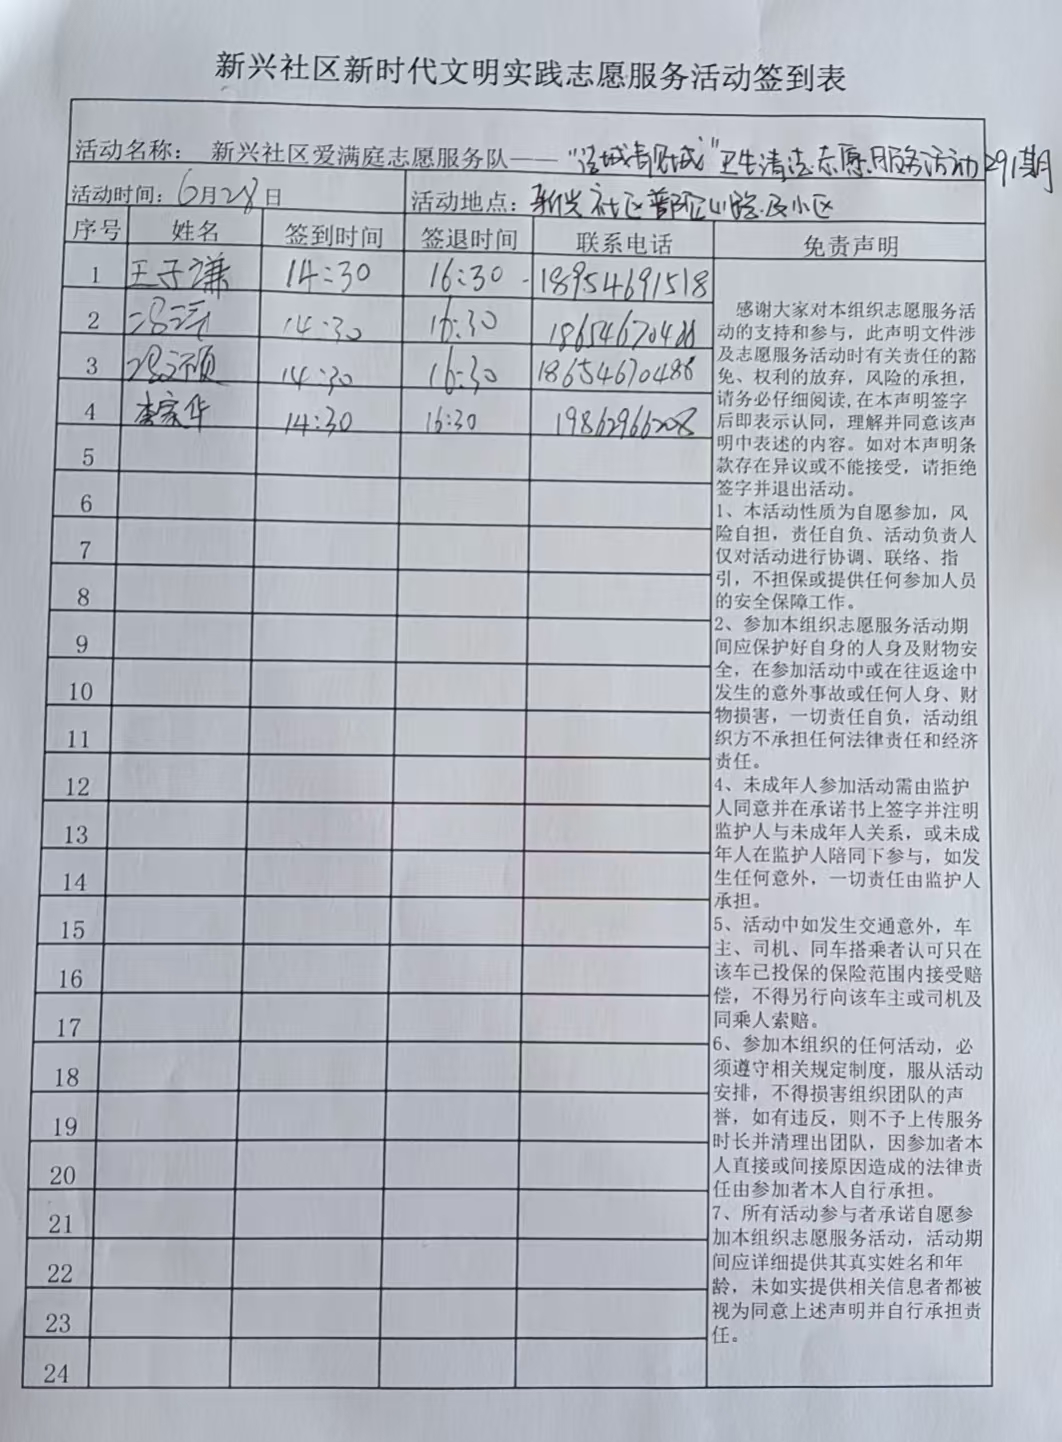 新兴社区新时代文明实践志愿服务活动签到表
活动名称： 新兴社区爱满庭志愿服务队——“ 卫生清洁志愿服务活动291期
活动时间：6月28日 活动地点：新兴社区 小区
序号 姓名 签到时间 签退时间 联系电话 免责声明
1 王子谦 14:30 16:30 18954691518
2 14:30 16:30 18654670488
3 14:30 16:30 18654670488
4 李家华 14:30 16:30 19862966208
5
6
7
8
9
10
11
12
13
14
15
16
17
18
19
20
21
22
23
24
感谢大家对本组织志愿服务活
动的支持和参与，此声明文件涉
及志愿服务活动时有关责任的豁
免、权利的放弃，风险的承担，
请务必仔细阅读,在本声明签字
后即表示认同，理解并同意该声
明中表述的内容。如对本声明条
款存在异议或不能接受，请拒绝
签字并退出活动。
1、本活动性质为自愿参加，风
险自担，责任自负、活动负责人
仅对活动进行协调、联络、指
引，不担保或提供任何参加人员
的安全保障工作。
2、参加本组织志愿服务活动期
间应保护好自身的人身及财物安
全，在参加活动中或在往返途中
发生的意外事故或任何人身、财
物损害，一切责任自负，活动组
织方不承担任何法律责任和经济
责任。
4、未成年人参加活动需由监护
人同意并在承诺书上签字并注明
监护人与未成年人关系，或未成
年人在监护人陪同下参与，如发
生任何意外，一切责任由监护人
承担。
5、活动中如发生交通意外，车
主、司机、同车搭乘者认可只在
该车已投保的保险范围内接受赔
偿，不得另行向该车主或司机及
同乘人索赔。
6、参加本组织的任何活动，必
须遵守相关规定制度，服从活动
安排，不得损害组织团队的声
誉，如有违反，则不予上传服务
时长并清理出团队，因参加者本
人直接或间接原因造成的法律责
任由参加者本人自行承担。
7、所有活动参与者承诺自愿参
加本组织志愿服务活动，活动期
间应详细提供其真实姓名和年
龄，未如实提供相关信息者都被
视为同意上述声明并自行承担责
任。